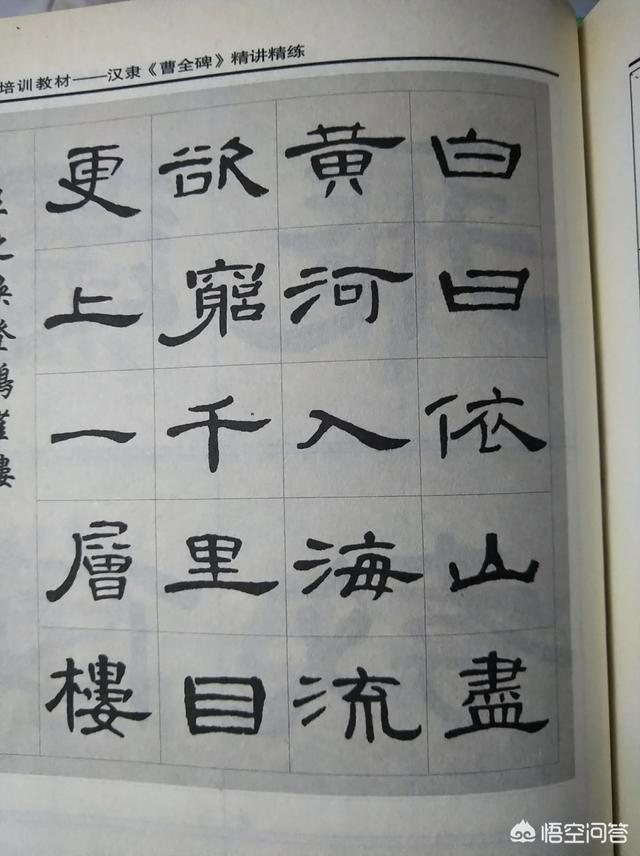 培训教材——汉隶《曹全碑》精讲精练
白日依山盡
黄河入海流
欲窮千里目
更上一層樓
之渙登鸛雀樓
悟空问答